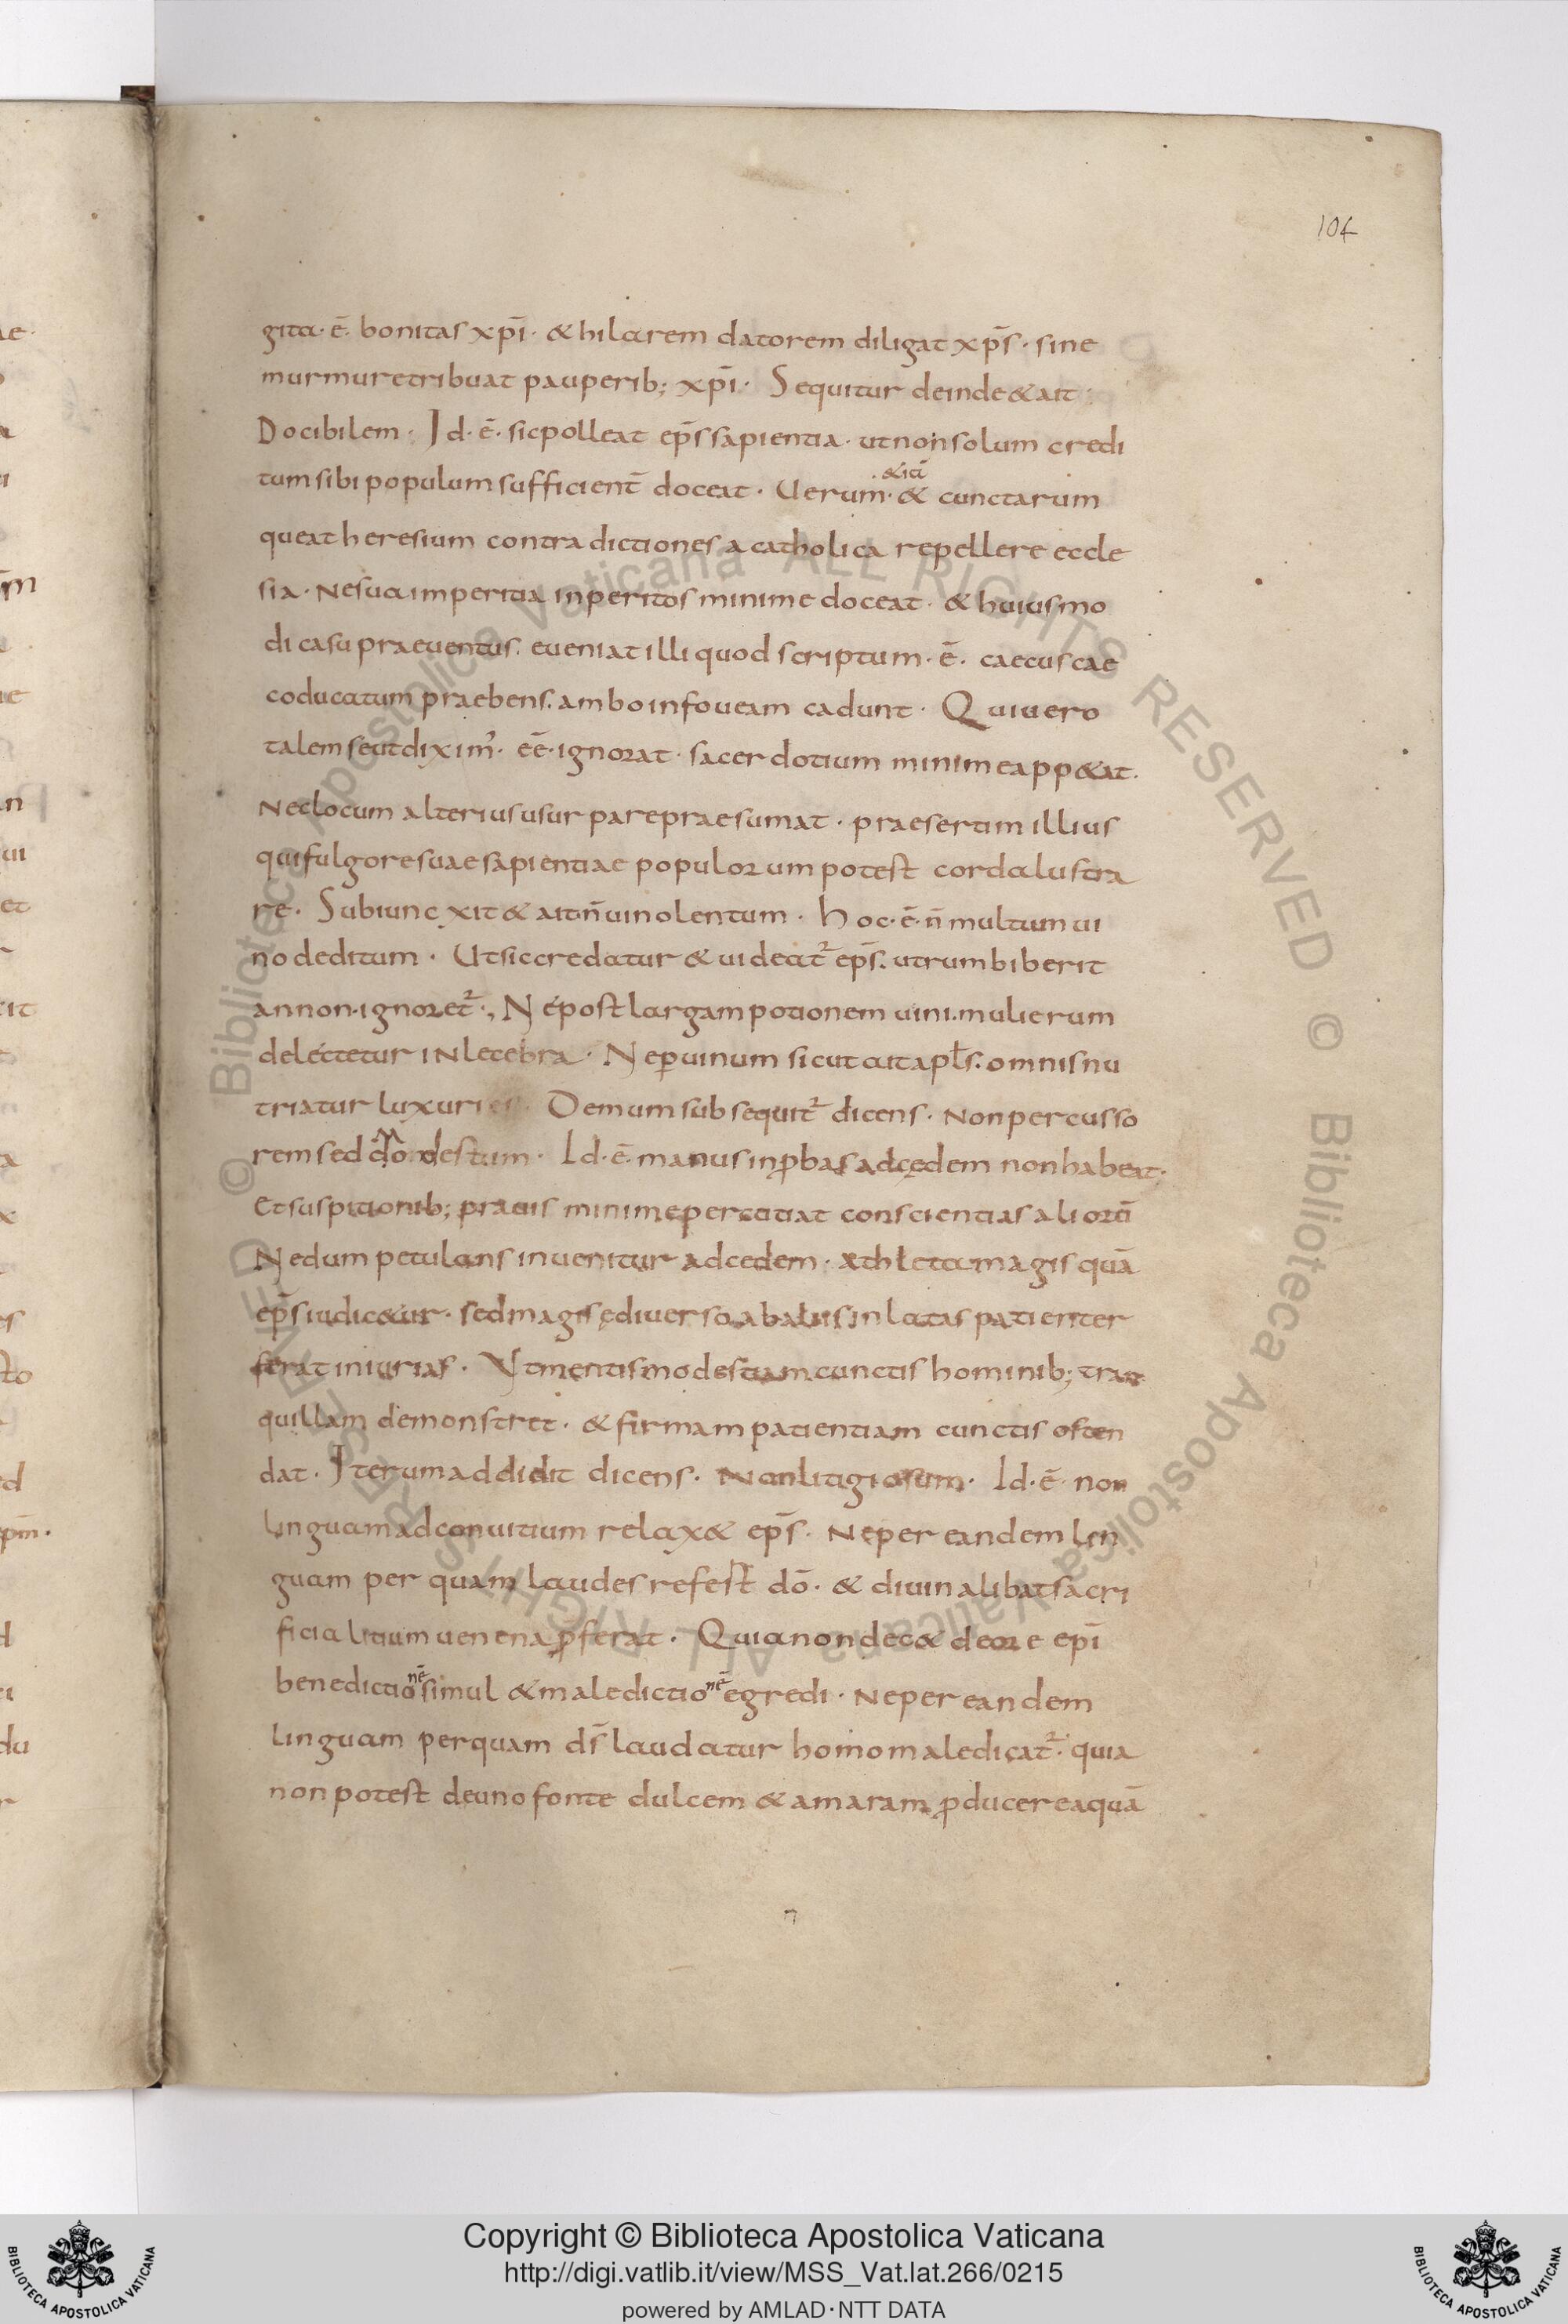 104
gita · ē · bonitas xp̄i · & hilarem datorem diligat xp̄s · sine
murmure tribuat pauperib; xp̄i · Sequitur deinde & ait ·
Docibilem · Id · ē · sic polleat ep̄s sapientia · ut non solum credi
tum sibi populum sufficient̄ doceat · Uerum · & cunctarum
queat heresium contradictiones a catholica repellere eccle
sia · Ne sua imperitia inperitos minime doceat · & huiusmo
di casu praeuentus. eueniat illi quod scriptum · ē · caecus cae
co ducatum praebens. ambo in foueam cadunt · Qui uero
talem seut dixim᾽ · eē · ignorat · sacerdotium minime app&at.
Nec locum alterius usurpare praesumat · praesertim illius
qui fulgore suae sapientiae populorum potest corda lustra
re · Subiuncxit & ait n̄ uinolentum · hoc · ē · n̄ multum ui
no deditum · Ut sic credatur & uideat᷑ ep̄s. utrum biberit
an non · ignoret᷑ ·, Ne post largam potionem uini. mulierum
delectetur inlecebra · Ne per uinum sicut ait apl̄s. omnis nu
triatur luxuries · Demum subsequit᷑ dicens · Non percusso
rem sed modestum · Id · ē · manus inp̄bas ad cędem non habeat ·
Et suspitionib; prauis minime percutiat conscientias aliorū
Ne dum petulans inuenitur ad cedem · athleta magis quā
ep̄s iudic&ur · sed magis ę diuerso ab aliis inlatas patienter
ferat iniurias · Ut mentis modestiam cunctis hominib; tran
quillam demonstret · & firmam patientiam cunctis osten
dat · Iterum addidit dicens · Non litigiosum · Id · ē · non
linguam ad conuitium relax& ep̄s · Ne per eandem lin
guam per quam laudes refest dō · & diuina libat sacri
ficia litium uenena p̄ferat · Quia non dec& de ore ep̄i
benedictionē simul & maledictionē egredi · Ne per eandem
linguam per quam d̄s laudatur homo maledicat᷑ · quia
non potest de uno fonte dulcem & amaram p̄ducere aquā
Copyright © Biblioteca Apostolica Vaticana
http://digi.vatlib.it/view/MSS_Vat.lat.266/0215
powered by AMLAD·NTT DATA